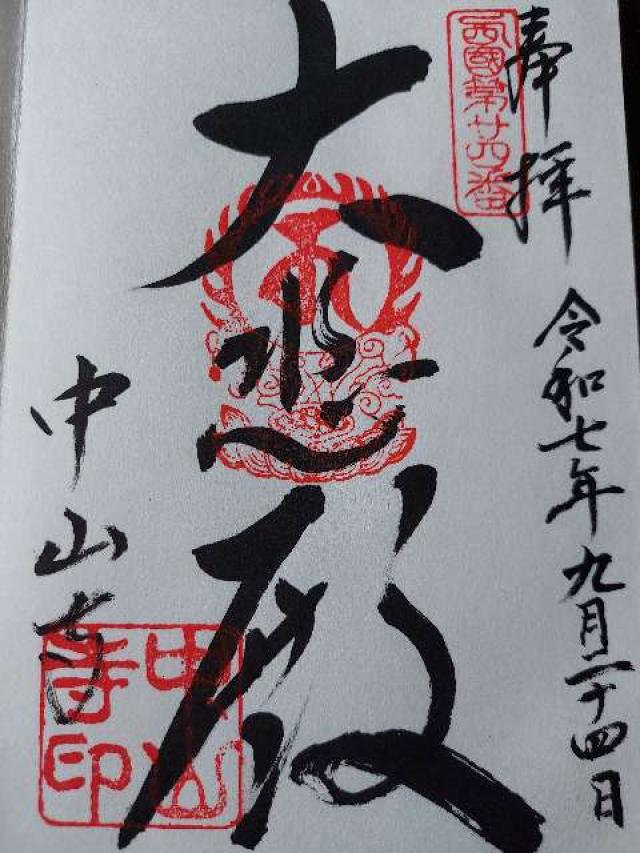 奉拝
西國第廿四番
令和七年九月二十四日
大悲殿
中山寺
中山寺印